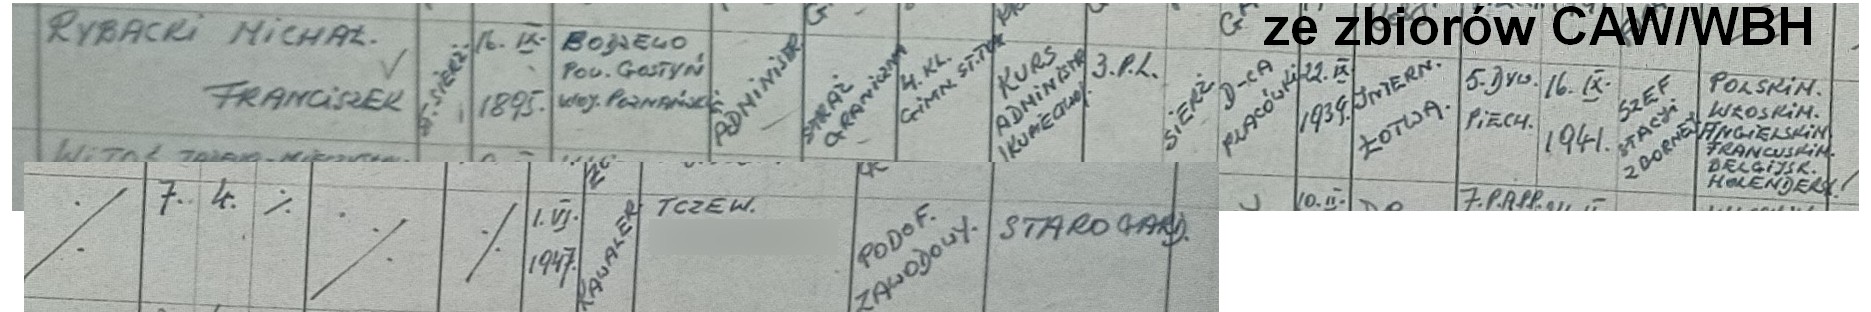 ze zbiorów CAW/WBH
RYBACKI MICHAŁ.
FRANCISZEK
ST. SIERŻ.
16. IX.
1895.
BODZEWO
POW. GOSTYŃ
WOJ. POZNAŃSKIE
ADMINISTR
STRAŻ
GRANICZNA
4. KL.
GIMN. ST. TYP.
KURS
ADMINISTR
I KUNIECKOWY.
3. P. L.
SIERŻ
D-CA
PLACÓWKI
22. IX
1939.
INTERN.
ŁOTWA.
5. DYW.
PIECH.
16. IX.
1941.
SZEF
STACJI
ZBORNEJ
POLSKIM.
WŁOSKIM.
ANGIELSKIM
FRANCUSKIM.
BELGIJSK.
HOLENDERSK.
10. II.
7. P.A.PP.
7. 4. %
1. VI.
1947.
KAWALER
TCZEW.
PODOF.
ZAWODOWY.
STAROGARD.